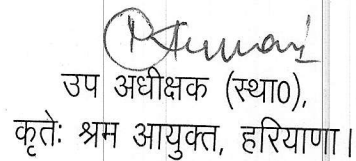 उप अधीक्षक (स्था0),
कृतेः श्रम आयुक्त, हरियाणा।